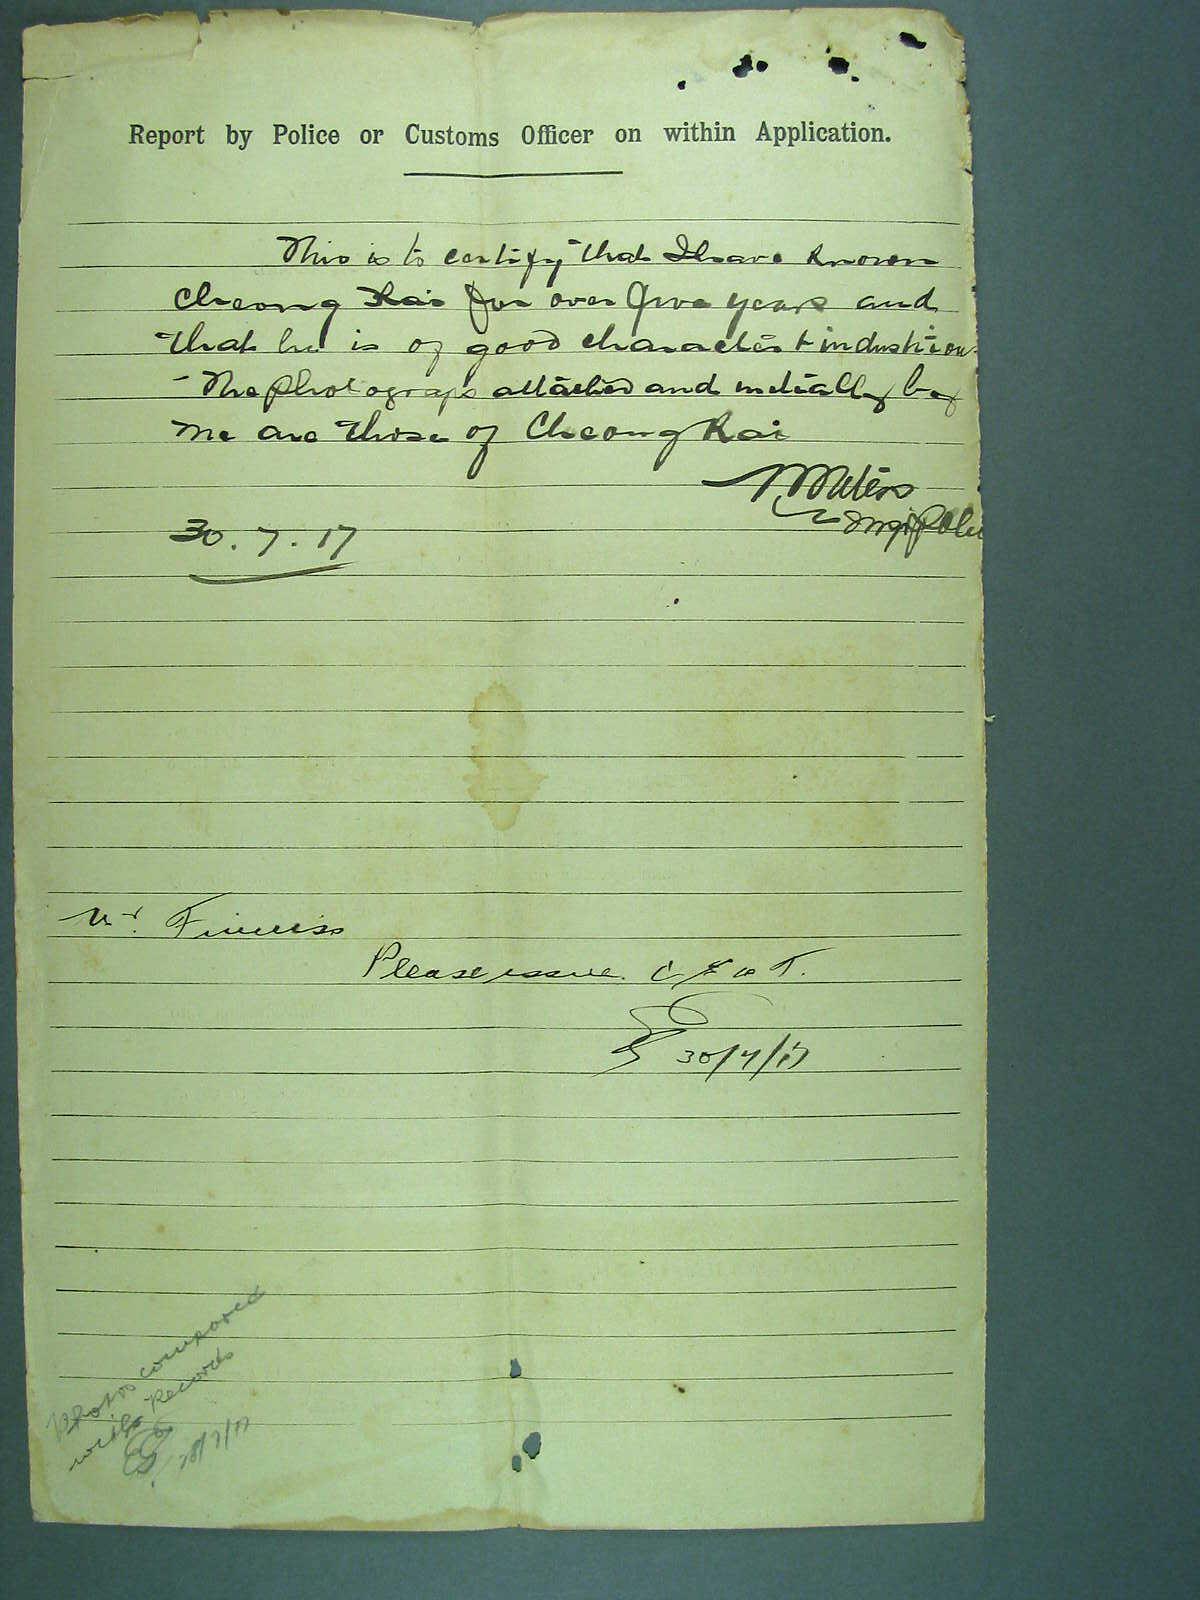 Report by Police or Customs Officer on within Application.
This is to certify that I have known
Cheong Kai for over five years and
that he is of good character & industrious
- The photograps attached and initially by
me are those of Cheong Kai
Sergt Police
30.7.17
Mr.
Please issue C E D T.
30/7/17
Photos compared
with Records
/7/17